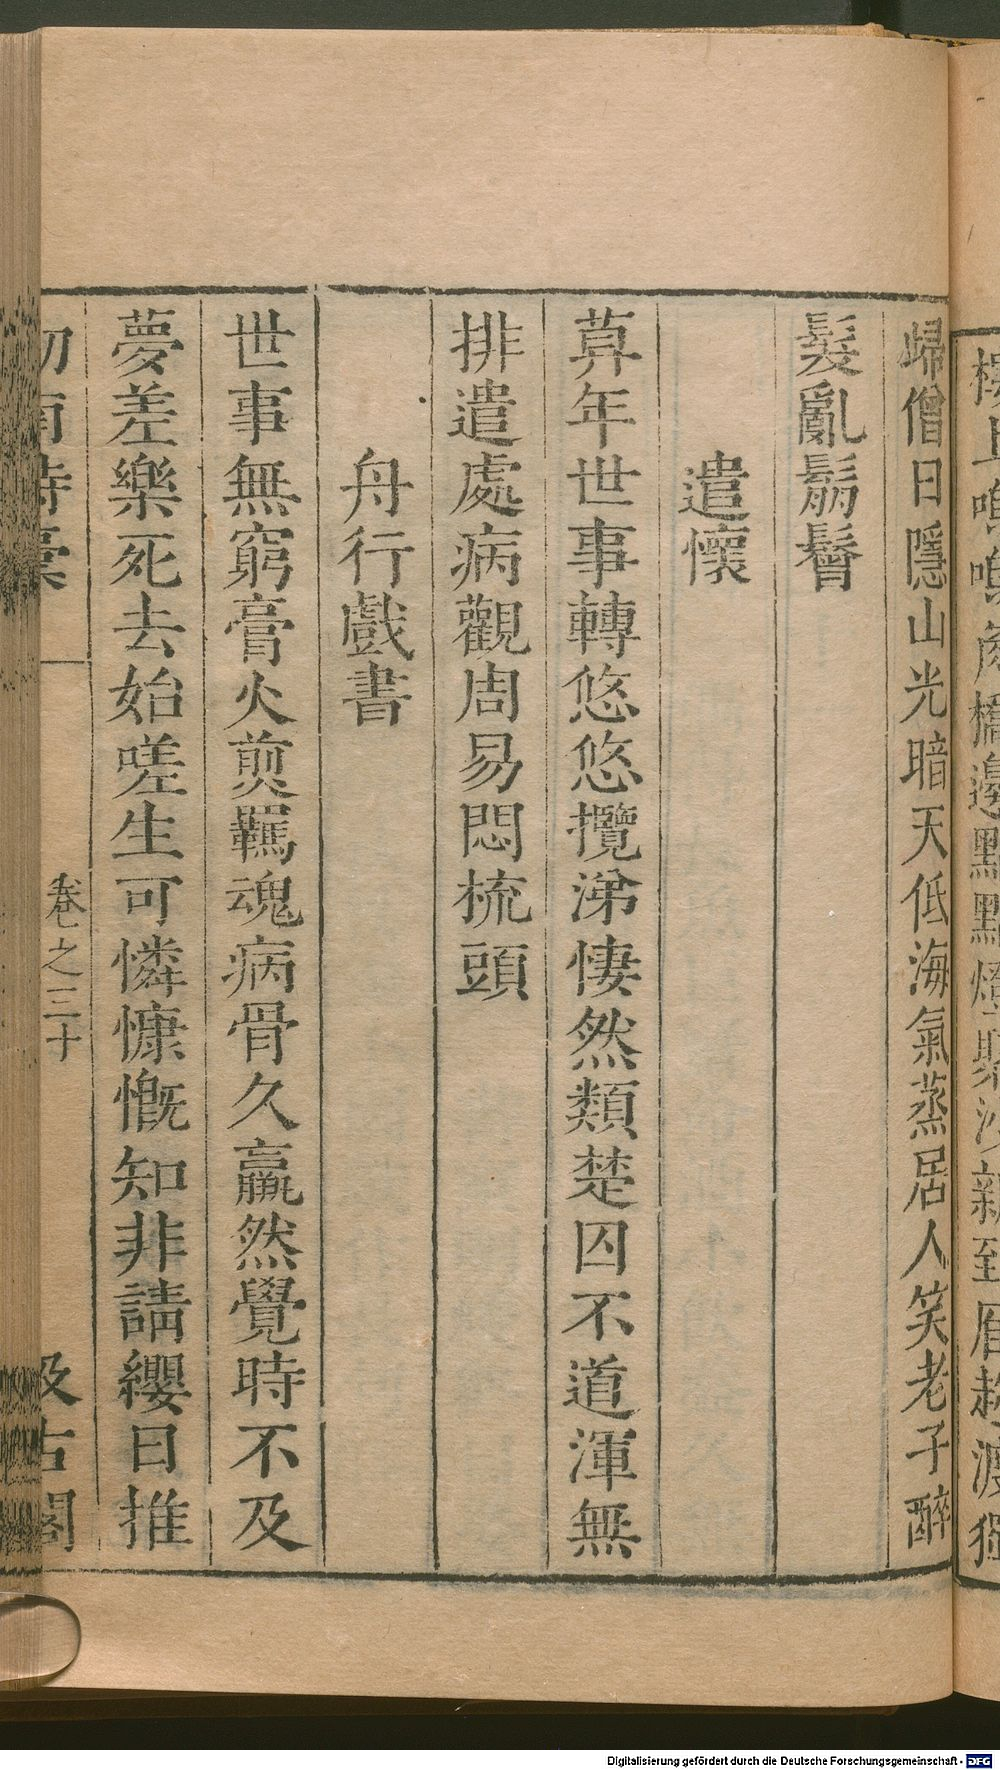 歸僧日隱山光暗天低海氣蒸居人笑老子醉
髮亂鬅鬙
遣懷
莫年世事轉悠悠攬涕悽然類楚囚不道渾無
排遣處病觀周易悶梳頭
舟行戲書
世事無窮膏火煎羈魂病骨久羸然覺時不及
夢差樂死去始嗟生可憐慷慨知非請纓日推
劍南詩稾
卷之三十
汲古閣
Digitalisierung gefördert durch die Deutsche Forschungsgemeinschaft - DFG